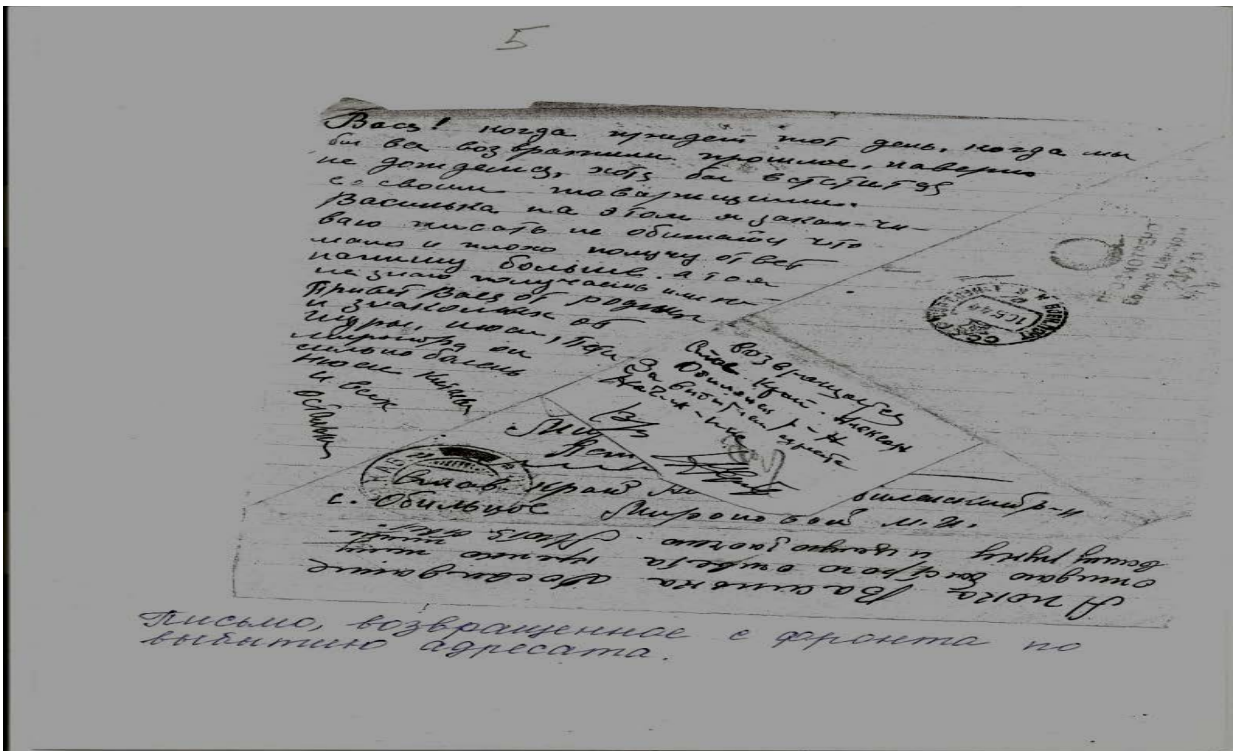 5
Вася! когда придет тот день, когда мы
бы все возвратили прошлое, наверно
не дождемся, хотя бы встретится
со своими товарищами.
Василька на этом я закан-чи-
ваю писать не обижайся что
мало и плохо получу ответ
напишу больше. а то я
не знаю получаешь или не-
Привет Вася от родных
и знакомых от
Шуры,
сильно болен
и всех
остальных
возвращается
Став край.
р-н
За выбытием адресата
Став. край
с. Обильное Мироновой М. И.
А пока, Василька Досвидание
ожидаю быстрого ответа крепко жму
вашу руку и целую заочно.
Письмо, возвращенное с фронта по
выбытию адресата.